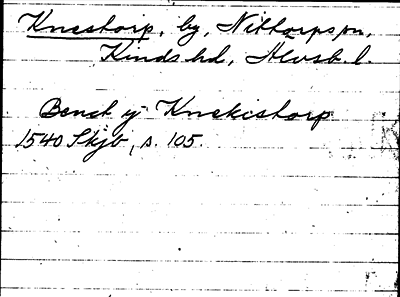 Knastorp, by, Nittorps sn,
Kinds hd, Älvsb. l.
Benct y Knekistorp
1540 Skjb, s. 105.